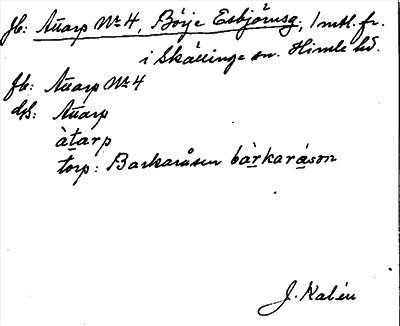 Jb: Attarp Nr 4, Börje Esbjörnsg., 1 mtl. fr.
i Skällinge sn. Himle hd.
fb: Attarp Nr 4
dβ: Attarp
àtarp
torp: Barkaråsen bàrkaråson
J. Kalén